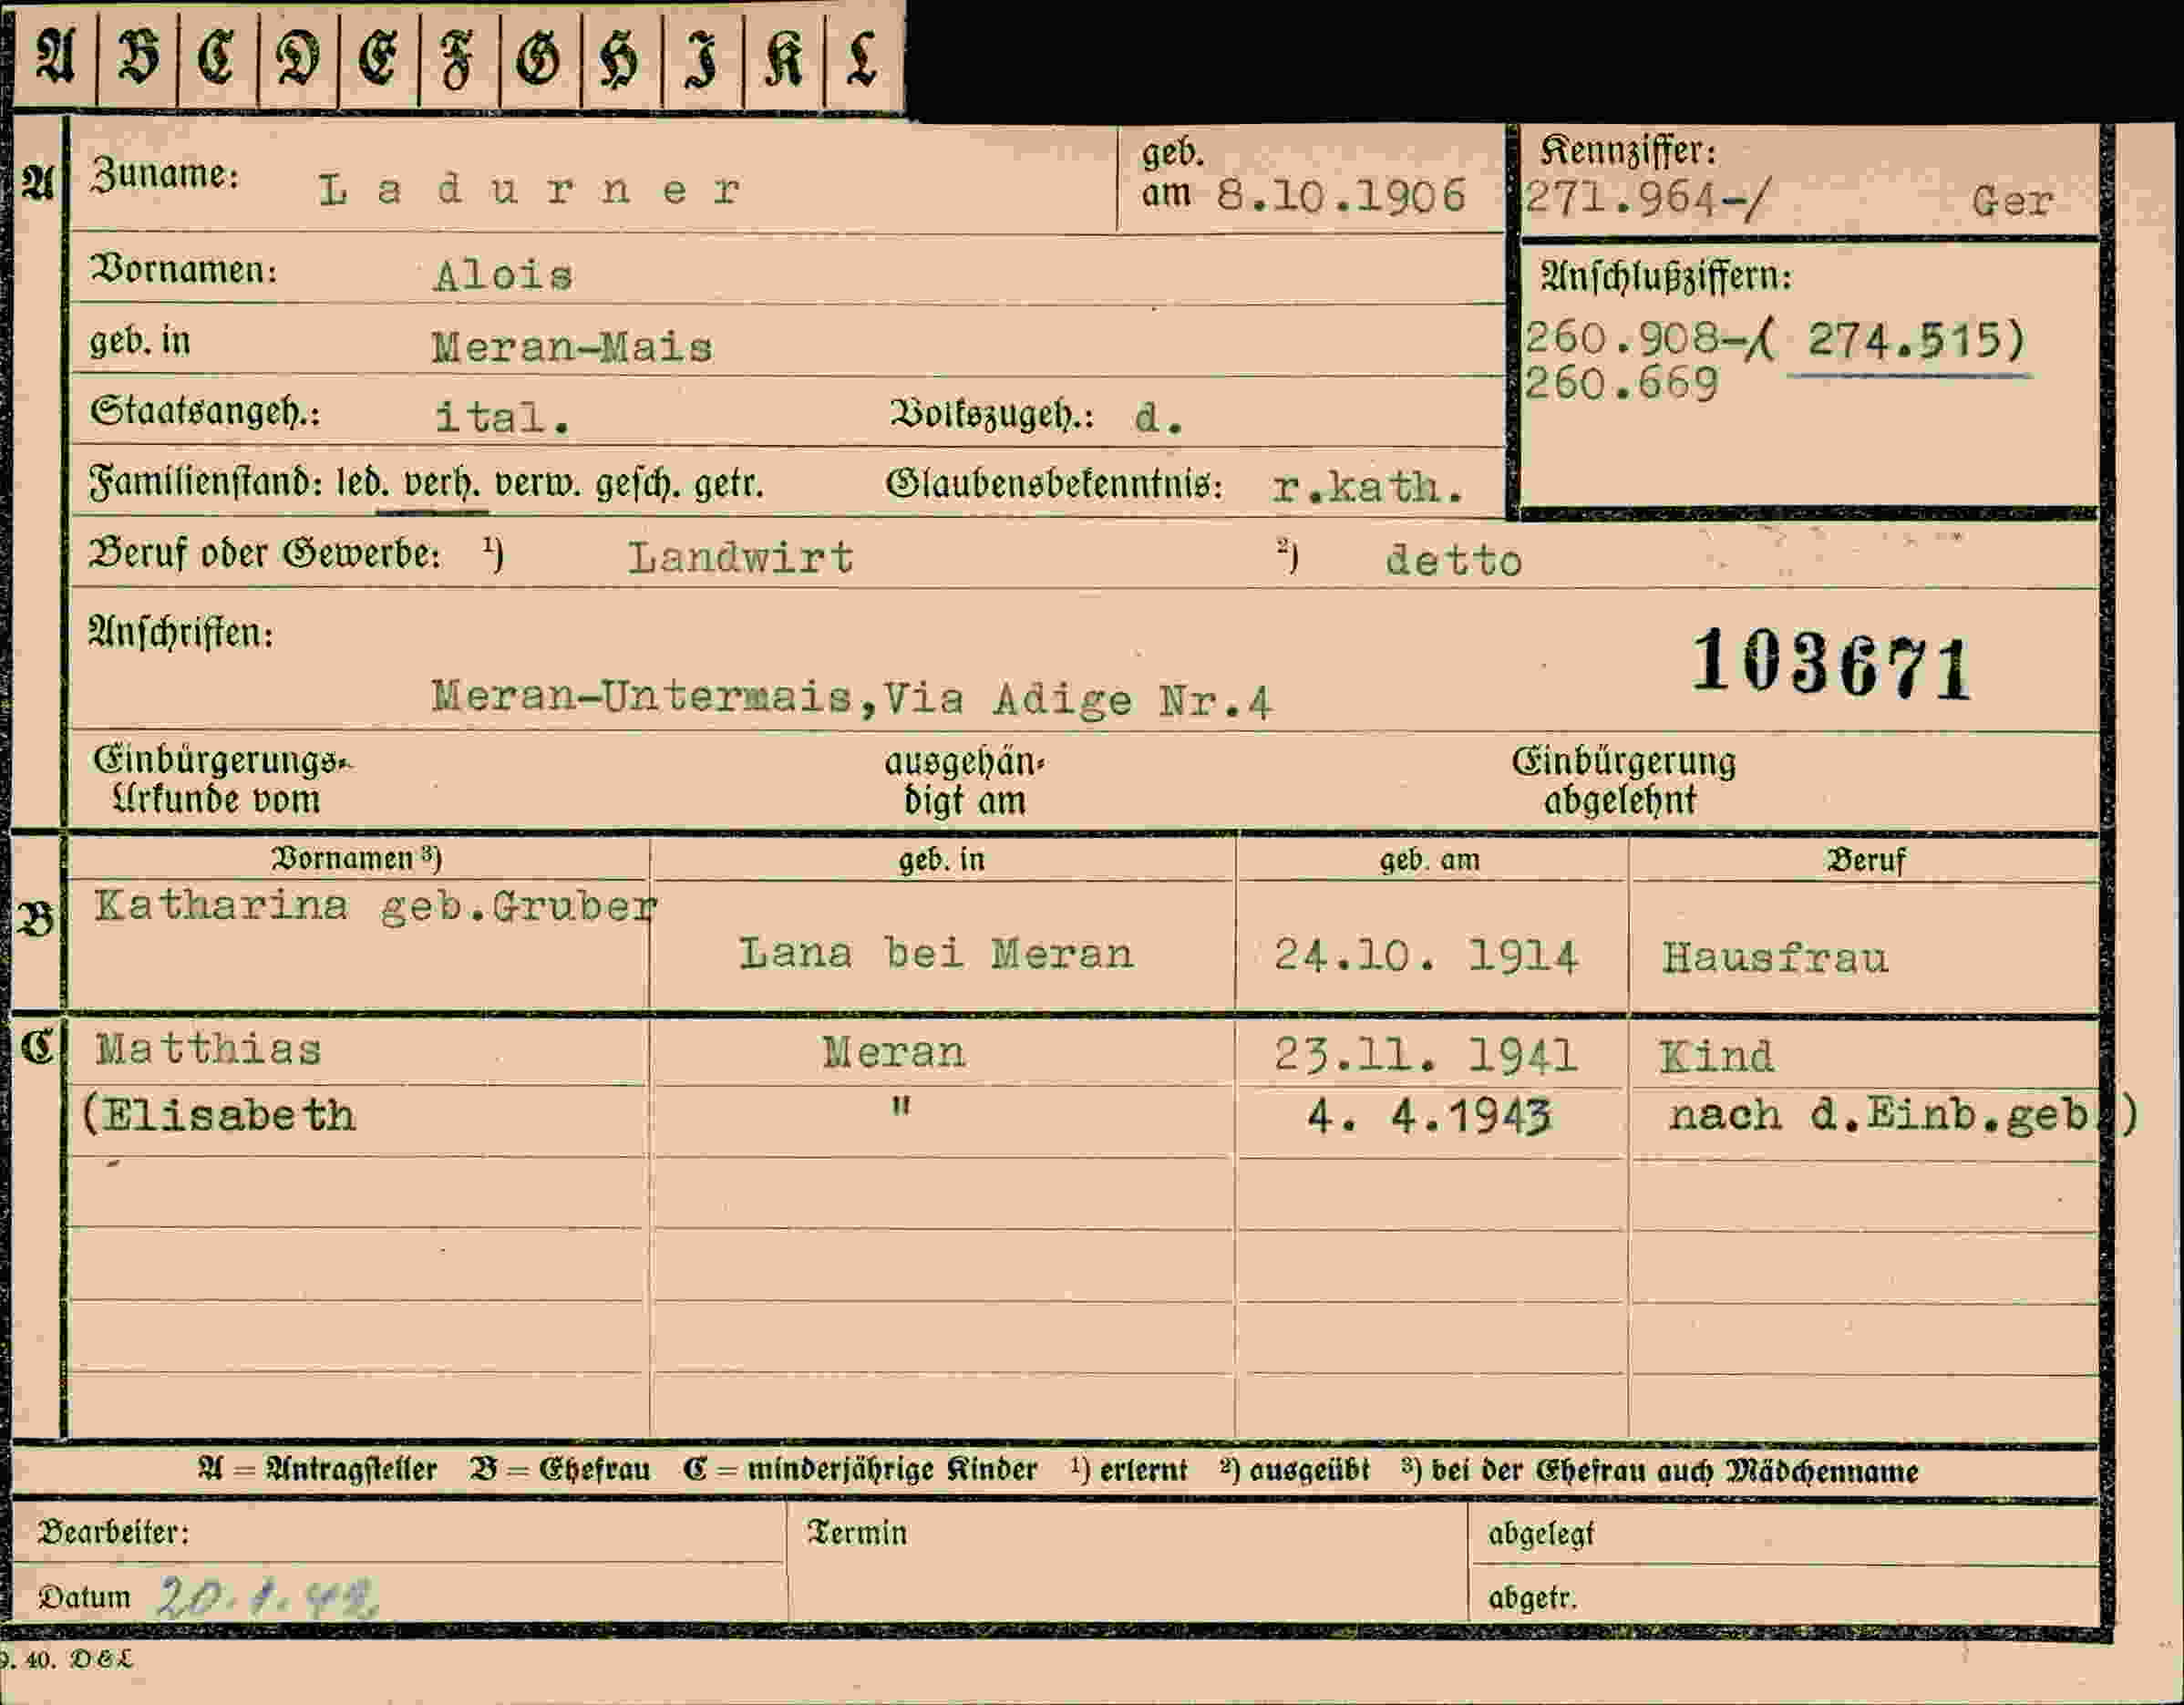 A B C D E F G H I K L
A Zuname: Ladurner geb. am 8.10.1906 Kennziffer: 271.964-/ Ger
Vornamen: Alois Anschlußziffern:
geb. in Meran-Mais 260.908-/( 274.515)
260.669
Staatsangeh.: ital. Volkszugeh.: d.
Familienstand: led. verh. verw. gesch. getr. Glaubensbekenntnis: r.kath.
Beruf oder Gewerbe: 1) Landwirt 2) detto
Anschriften:
103671
Meran-Untermais,Via Adige Nr.4
Einbürgerungs- ausgehän- Einbürgerung
Urkunde vom digt am abgelehnt
Vornamen 3) geb. in geb. am Beruf
B Katharina geb.Gruber
Lana bei Meran 24.10. 1914 Hausfrau
C Matthias Meran 23.11. 1941 Kind
(Elisabeth " 4. 4.1943 nach d.Einb.geb.)
A = Antragsteller B = Ehefrau C = minderjährige Kinder 1) erlernt 2) ausgeübt 3) bei der Ehefrau auch Mädchenname
Bearbeiter: Termin abgelegt
Datum 20.1.42 abgetr.
9. 40. D&L